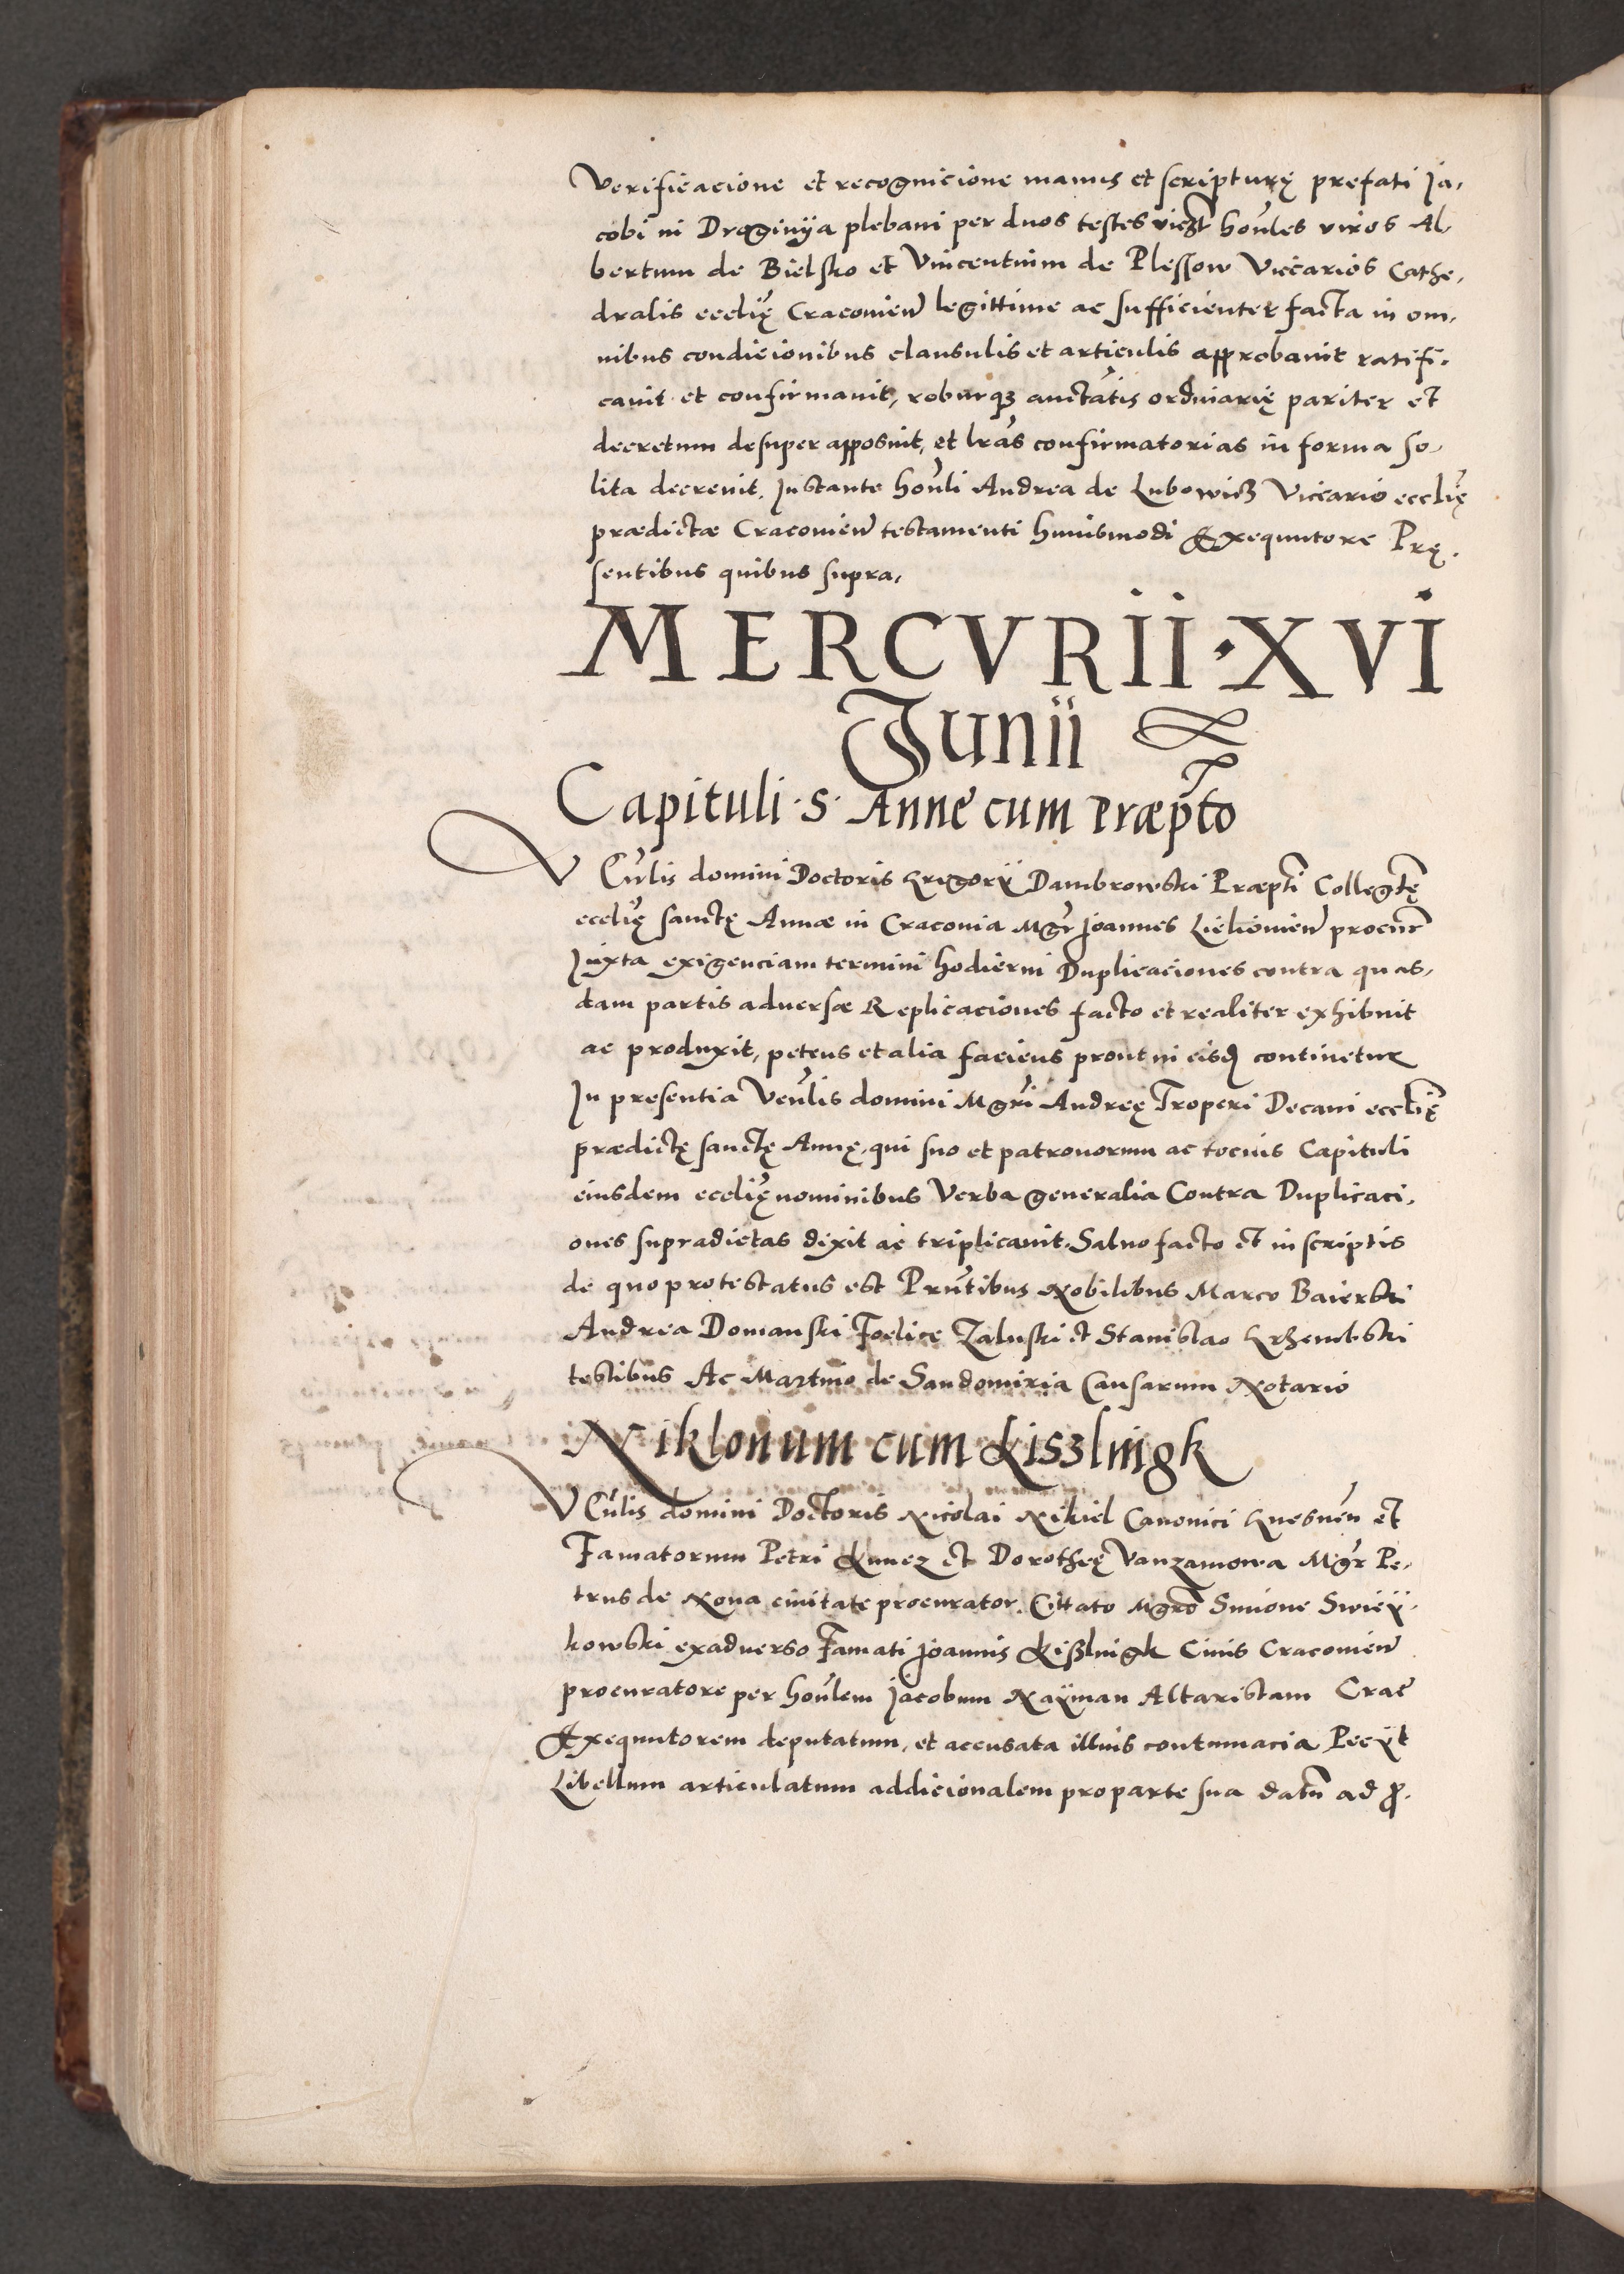 Verificacione et recognicione manus et scripturę prefati Ja,
cobi in Droginya plebani per duos testes viczt hon̄les viros Al,
bertum de Bielsko et Vincentium de Plessow Viccarios Cathe,
dralis ecclię Cracovien̄ legittime ac sufficienter facta in om,
nibus condicionibus clausulis et articulis approbavit ratifi,
cavit et confirmavit, roburqꝫ auctātis ordinarię pariter et
decretum desuper apposuit, et lrās confirmatorias in forma so,
lita decrevit. Instante hon̄li Andrea de Lubowicz Viccario ecclię
prædictæ Cracovien̄ testamenti huiusmodi Exequutore Prę,
sentibus quibus supra,
MERCVRII · XVI
Junii
Capituli · S · Anne cum Præpto
VCr̄lis domini Doctoris Grigorii Dambrowski Præpti Collegtę
ecclię sanctę Annæ in Cracovia Mgr Joannes procur̄
Juxta exigenciam termini hodierni Duplicaciones contra quas,
dam partis adversæ Replicaciones facto et realiter exhibuit
ac produxit, petens et alia faciens prout in eisd continetur
In presentia Ven̄lis domini Mgri Andreę Troperi Decani ecclię
prædictę sanctę Annę, qui suo et patronorum ac tocius Capituli
eiusdem ecclię nominibus Verba generalia Contra Duplicaci,
ones supradictas dixit ac triplicavit. Salvo facto et in scriptis
de quo protestatus est Prn̄tibus Nobilibus Marco Baierski
Andrea Domanski Foelice Zaluski et Stanislao Krzembski
testibus Ac Martino de Sandomiria Causarum Notario
Niklonum cum Kiszlingk
VCr̄lis domini Doctoris Nicolai Nikiel Canonici Gnesnen̄ et
Famatorum Petri Kunez et Dorotheę Vanzamowa Mgr Pe,
trus de Nova civitate procurator. Cittato Mgro Simone Swiey,
kowski exadverso Famati Joannis Kiszlingk Civis Cracovien̄
procuratore per hon̄lem Jacobum Nayman Altaristam Crac̄
Exequutorem deputatum, et accusata illius contumacia Peciit
Libellum articulatum addicionalem pro parte sua datū ad ꝓ,